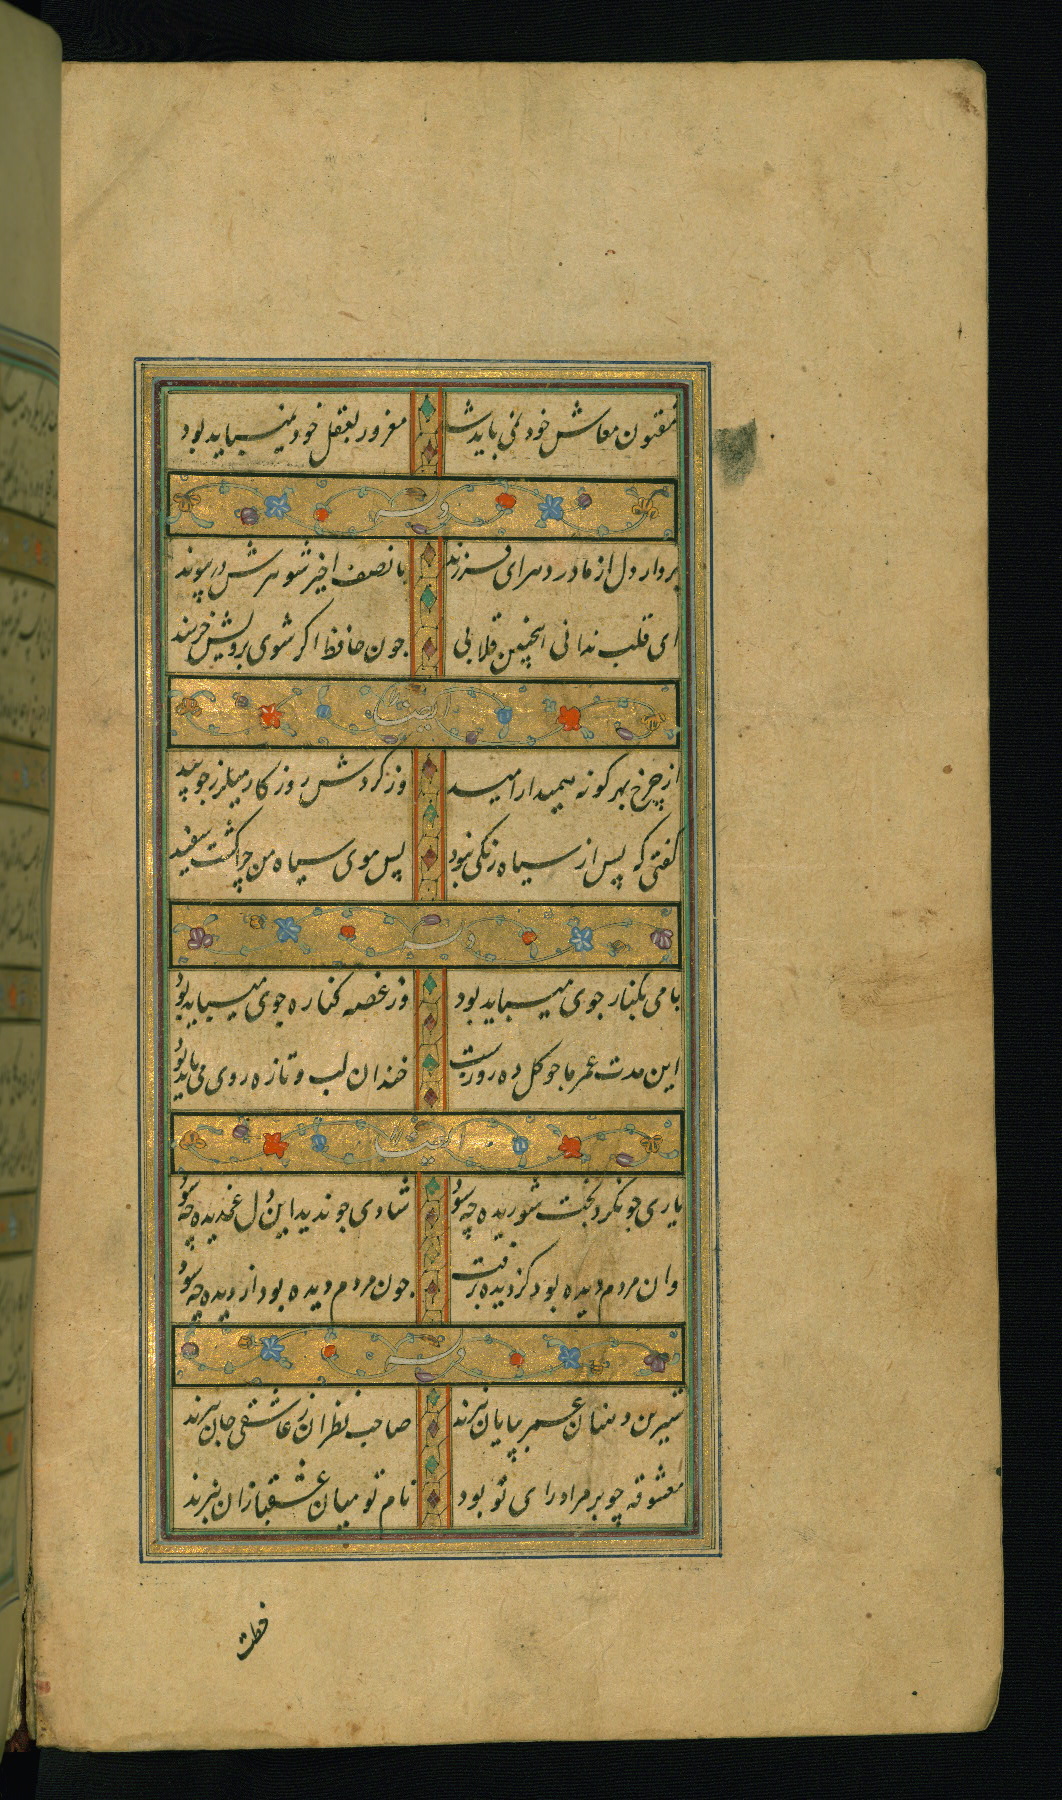 مفتون معاش خود نمی باید شد مغرور بعقل خود نمیباید بود
وله
بردار دل از مادر دهر ای فرزند با نصف اخیر شوهرش در پیوند
ای قلب ندانی اینچنین قلابی چون حافظ اکر شوی برویش خرسند
ایضا
از چرخ بهر کونه همیدار امید وز کردش روزکار میلرز چو بید
کفتی که پس از سیاه رنکی نبود پس موی سیاه من چرا کشت سفید
وله
با می بکنار جوی میباید بود وز غصه کناره جوی میباید بود
این مدت عمر ما چو کل ده روزست خندان لب و تازه روی می باید بود
ایضا
یاری چو نکرد بخت شوریده چه سود شادی چو ندید این دل غمدیده چه سود
وان مردم دیده بود کز دیده برفت چون مردم دیده بود از دیده چه سود
وله
شیرین دهنان عمر بپایان نبرند صاحب نظران ز عاشقی جان نبرند
معشوقه چو بر مراد رای تو بود نام تو میان عشقبازان نبرند